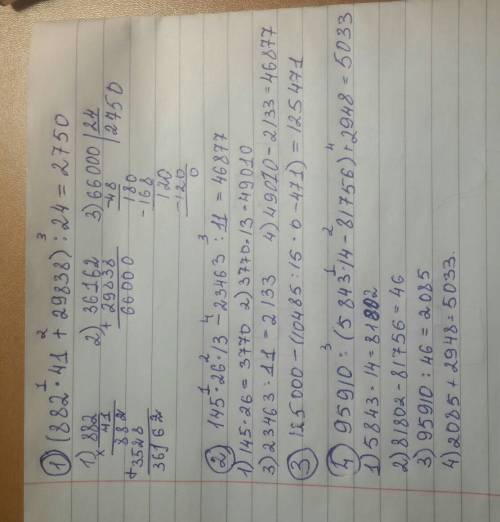 ① (882 ¹· 41 ²+ 29838) ³: 24 = 2750
1) × 882
41
882
+ 3528
36162
2) 36162
+ 29838
66000
3) 66000 | 24
- 48 | 2750
180
- 168
120
- 120
0
② 145 ¹· 26 ²· 13 ⁴- 23463 ³: 11 = 46877
1) 145 · 26 = 3770 2) 3770 · 13 = 49010
3) 23463 : 11 = 2133 4) 49010 - 2133 = 46877
③ 125000 - (10485 : 15 · 0 - 471) = 125471
④ 95910 ³: (5843 ¹· 14 ²- 81756) ⁴+ 2948 = 5033
1) 5843 · 14 = 81802
2) 81802 - 81756 = 46
3) 95910 : 46 = 2085
4) 2085 + 2948 = 5033.